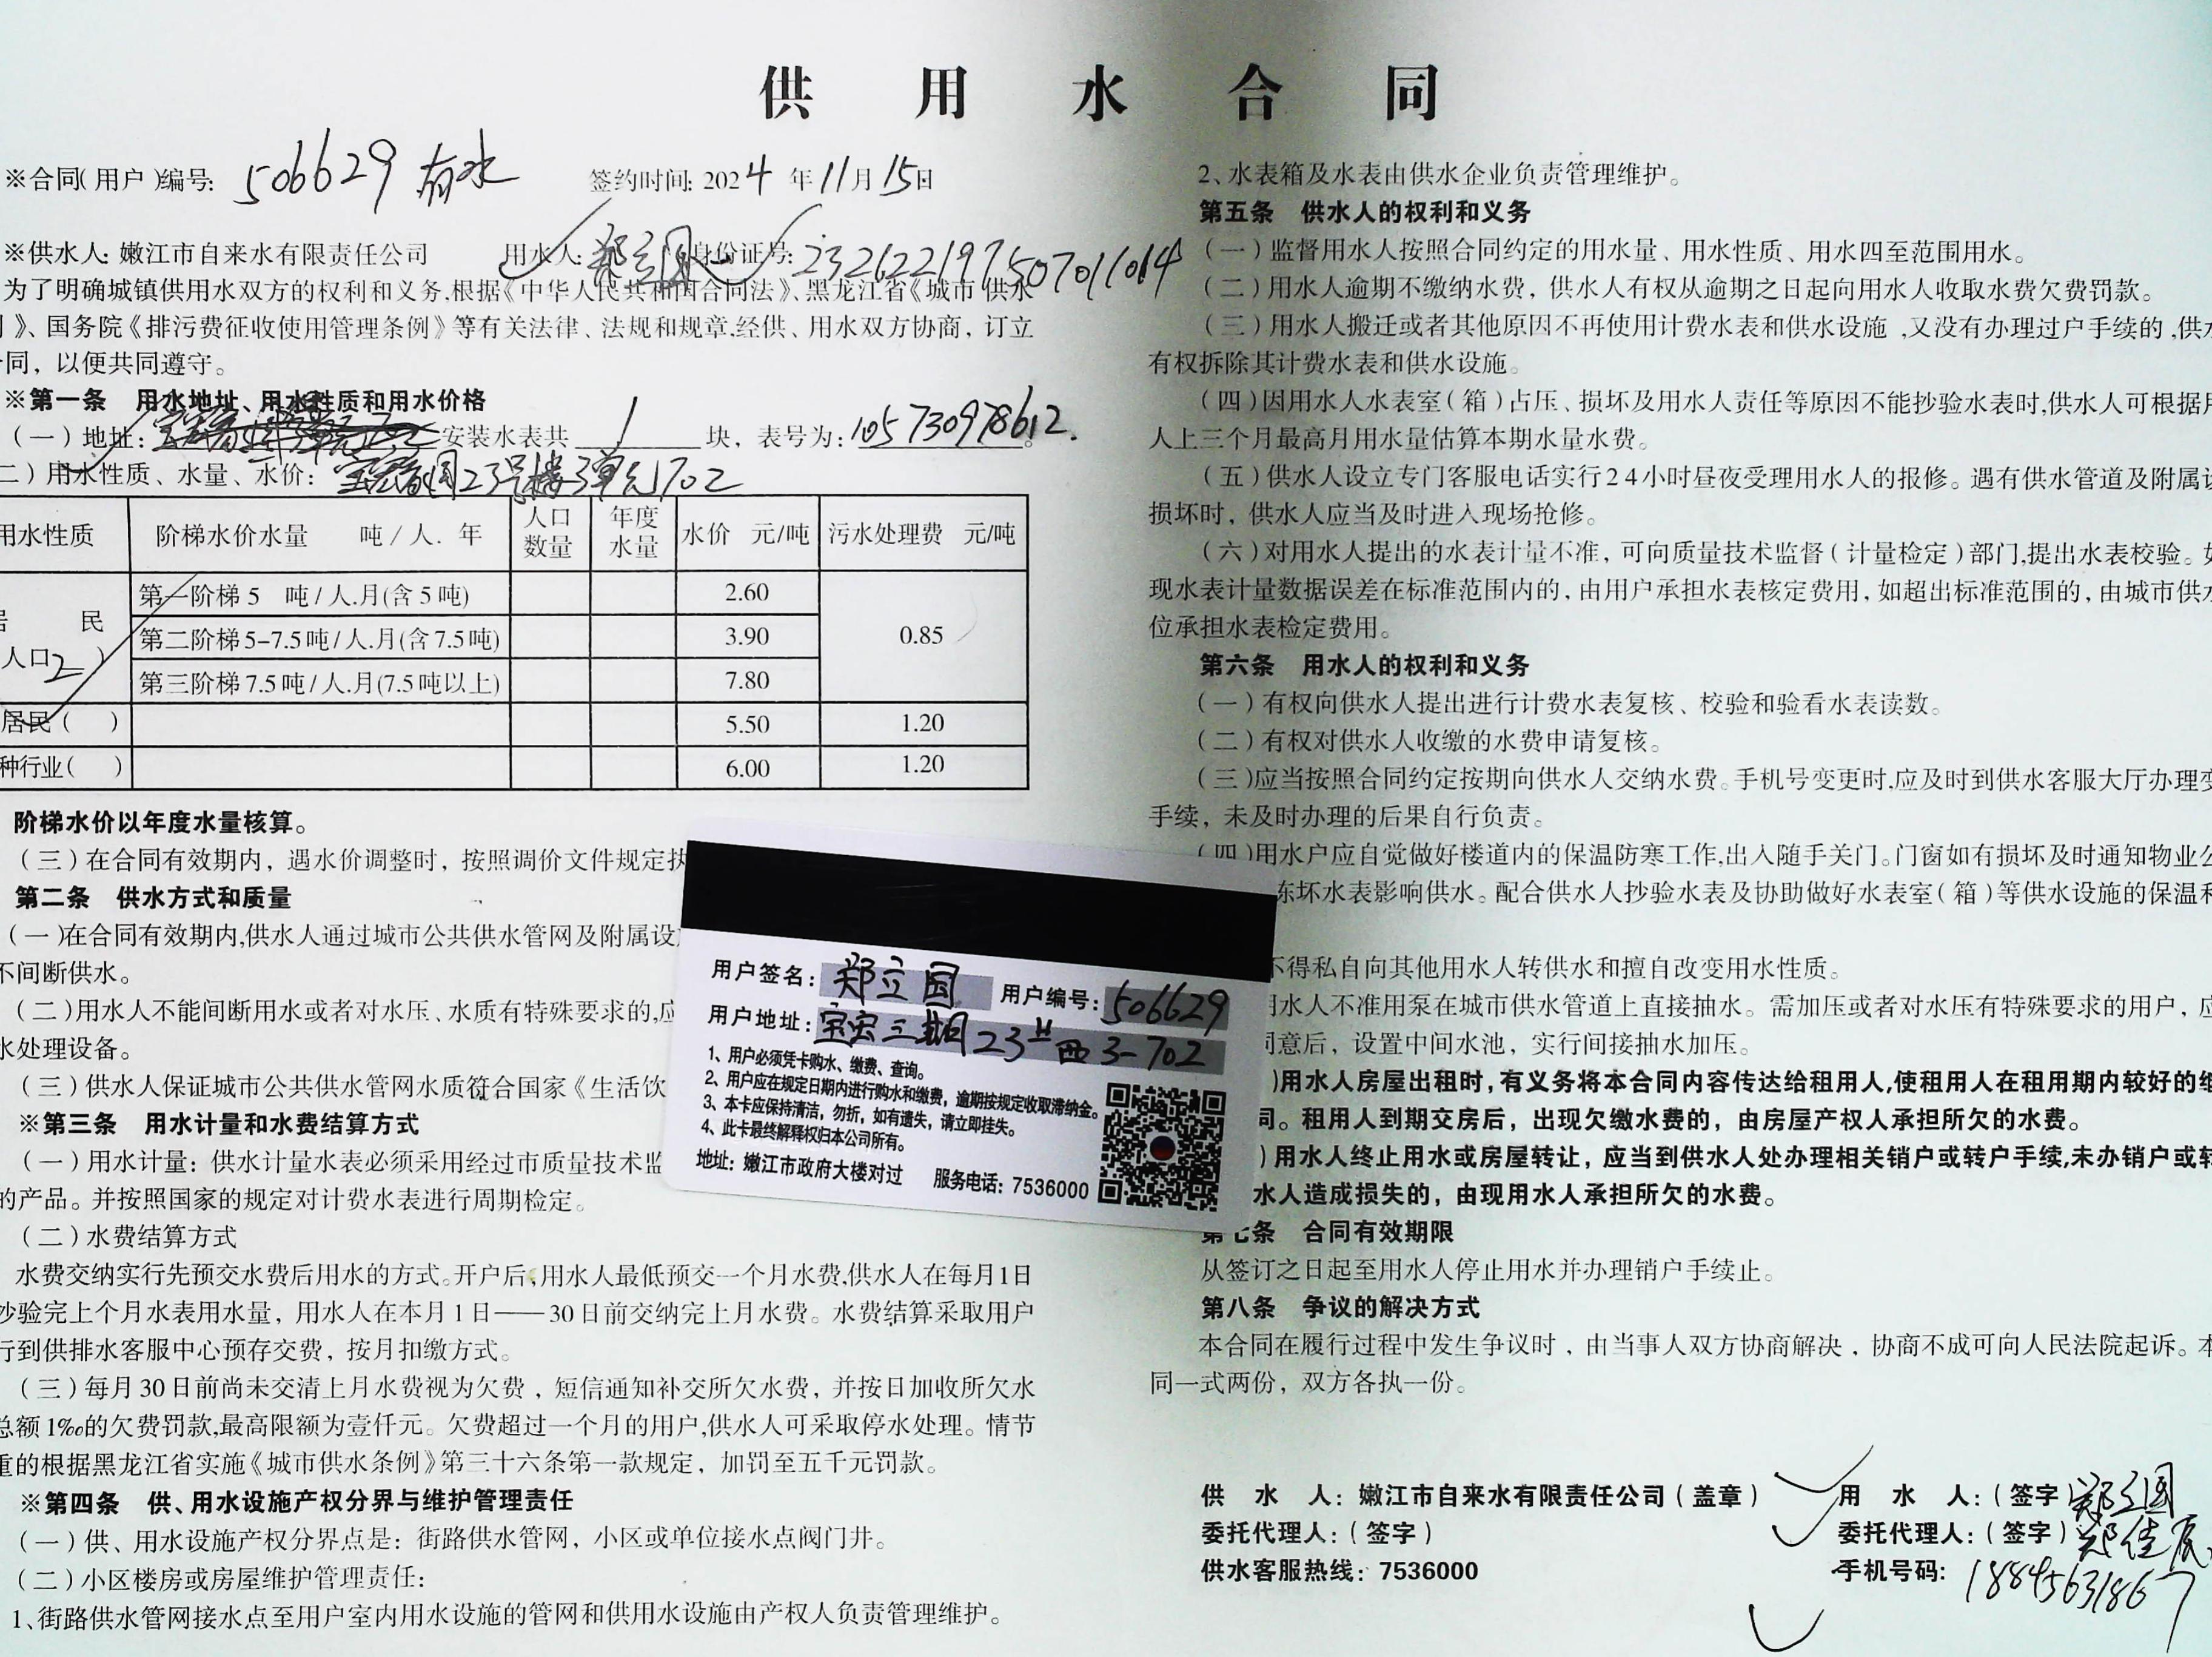 供用水合同
※合同(用户)编号: 506629 有水 签约时间: 2024年11月15日
※供水人: 嫩江市自来水有限责任公司 用水人: 郑立国 身份证号:
为了明确城镇供用水双方的权利和义务,根据《中华人民共和国合同法》、黑龙江省《城市供水
》、国务院《排污费征收使用管理条例》等有关法律、法规和规章,经供、用水双方协商，订立
同，以便共同遵守。
※第一条 用水地址、用水性质和用水价格
(一)地址: 安装水表共 1 块，表号为: 105730978612.
二)用水性质、水量、水价: 23号楼3单元702
用水性质 阶梯水价水量 吨/人.年 人口数量 年度水量 水价 元/吨 污水处理费 元/吨
民 人口2 )
第一阶梯5 吨/人.月(含5吨) 2.60 0.85
第二阶梯5-7.5吨/人.月(含7.5吨) 3.90
第三阶梯7.5吨/人.月(7.5吨以上) 7.80
居民( ) 5.50 1.20
种行业( ) 6.00 1.20
阶梯水价以年度水量核算。
(三)在合同有效期内，遇水价调整时，按照调价文件规定执
第二条 供水方式和质量
(一)在合同有效期内,供水人通过城市公共供水管网及附属设
不间断供水。
(二)用水人不能间断用水或者对水压、水质有特殊要求的,应
水处理设备。
(三)供水人保证城市公共供水管网水质符合国家《生活饮
※第三条 用水计量和水费结算方式
(一)用水计量：供水计量水表必须采用经过市质量技术监
的产品。并按照国家的规定对计费水表进行周期检定。
(二)水费结算方式
水费交纳实行先预交水费后用水的方式。开户后,用水人最低预交一个月水费,供水人在每月1日
抄验完上个月水表用水量，用水人在本月1日——30日前交纳完上月水费。水费结算采取用户
行到供排水客服中心预存交费，按月扣缴方式。
(三)每月30日前尚未交清上月水费视为欠费，短信通知补交所欠水费，并按日加收所欠水
总额1‰的欠费罚款,最高限额为壹仟元。欠费超过一个月的用户,供水人可采取停水处理。情节
重的根据黑龙江省实施《城市供水条例》第三十六条第一款规定，加罚至五千元罚款。
※第四条 供、用水设施产权分界与维护管理责任
(一)供、用水设施产权分界点是：街路供水管网，小区或单位接水点阀门井。
(二)小区楼房或房屋维护管理责任:
1、街路供水管网接水点至用户室内用水设施的管网和供用水设施由产权人负责管理维护。
2、水表箱及水表由供水企业负责管理维护。
第五条 供水人的权利和义务
(一)监督用水人按照合同约定的用水量、用水性质、用水四至范围用水。
(二)用水人逾期不缴纳水费，供水人有权从逾期之日起向用水人收取水费欠费罚款。
(三)用水人搬迁或者其他原因不再使用计费水表和供水设施,又没有办理过户手续的,供水
有权拆除其计费水表和供水设施。
(四)因用水人水表室(箱)占压、损坏及用水人责任等原因不能抄验水表时,供水人可根据用
人上三个月最高月用水量估算本期水量水费。
(五)供水人设立专门客服电话实行24小时昼夜受理用水人的报修。遇有供水管道及附属设
损坏时，供水人应当及时进入现场抢修。
(六)对用水人提出的水表计量不准，可向质量技术监督(计量检定)部门,提出水表校验。如
现水表计量数据误差在标准范围内的，由用户承担水表核定费用，如超出标准范围的，由城市供水
位承担水表检定费用。
第六条 用水人的权利和义务
(一)有权向供水人提出进行计费水表复核、校验和验看水表读数。
(二)有权对供水人收缴的水费申请复核。
(三)应当按照合同约定按期向供水人交纳水费。手机号变更时,应及时到供水客服大厅办理变
手续，未及时办理的后果自行负责。
(四)用水户应自觉做好楼道内的保温防寒工作,出入随手关门。门窗如有损坏及时通知物业公
冻坏水表影响供水。配合供水人抄验水表及协助做好水表室(箱)等供水设施的保温和
不得私自向其他用水人转供水和擅自改变用水性质。
用水人不准用泵在城市供水管道上直接抽水。需加压或者对水压有特殊要求的用户，应
同意后，设置中间水池，实行间接抽水加压。
)用水人房屋出租时,有义务将本合同内容传达给租用人,使租用人在租用期内较好的继
同。租用人到期交房后，出现欠缴水费的，由房屋产权人承担所欠的水费。
)用水人终止用水或房屋转让，应当到供水人处办理相关销户或转户手续,未办销户或转
水人造成损失的，由现用水人承担所欠的水费。
第七条 合同有效期限
从签订之日起至用水人停止用水并办理销户手续止。
第八条 争议的解决方式
本合同在履行过程中发生争议时，由当事人双方协商解决，协商不成可向人民法院起诉。本
同一式两份，双方各执一份。
供 水 人：嫩江市自来水有限责任公司(盖章) 用 水 人:(签字) 郑立国
委托代理人:(签字) 委托代理人:(签字) 郑佳辰
供水客服热线: 7536000 手机号码: 18845631867
用户签名: 郑立国 用户编号: 506629
用户地址: 宝宏三期 23# 西 3-702
1、用户必须凭卡购水、缴费、查询。
2、用户应在规定日期内进行购水和缴费，逾期按规定收取滞纳金。
3、本卡应保持清洁，勿折，如有遗失，请立即挂失。
4、此卡最终解释权归本公司所有。
地址: 嫩江市政府大楼对过 服务电话: 7536000